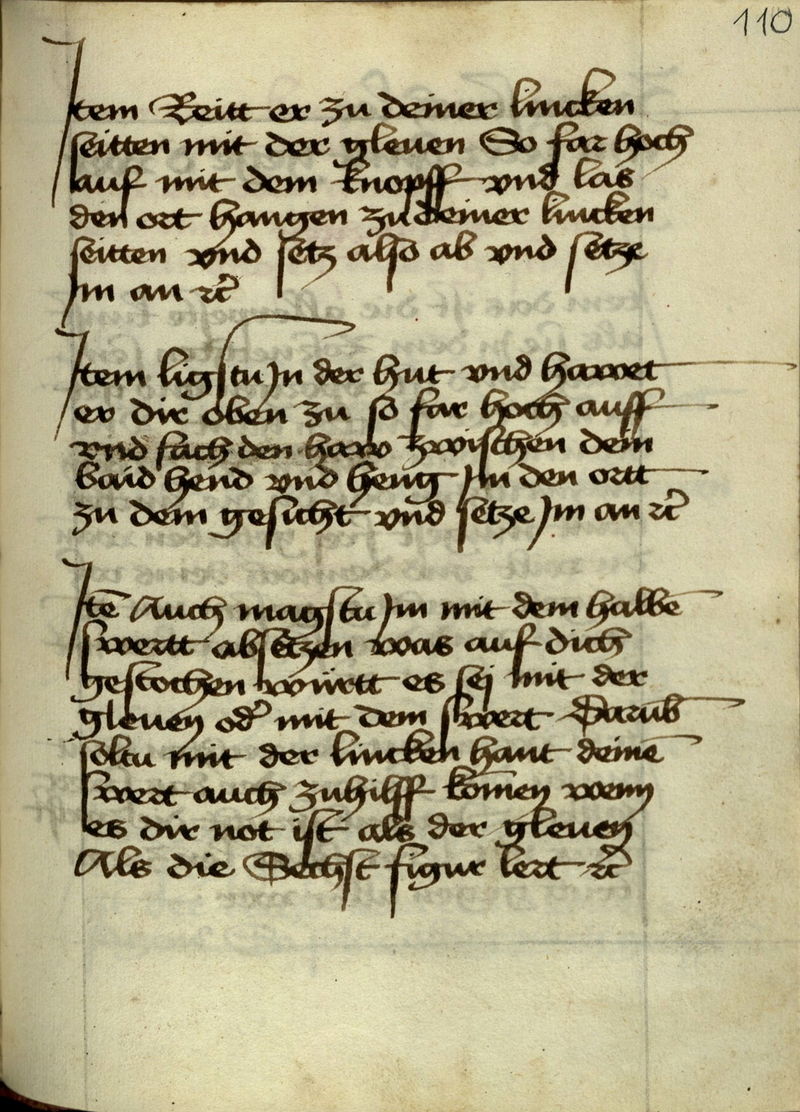 110
Item Reitt er zu deiner lincken
seitten mit der gleuen So far hoch
auf mit dem knopff vnd las
den ort hangen zu deiner lincken
seitten vnd setz also ab vnd setze
Im an rc̄
Item ligstu Jn der hut vnd hawet
er dir oben zu so far hoch auff
vnd fach den haw zwischen dein
baid hend vnd heng Jm den ortt
zu dem gesicht vnd setze Jm an rc̄
Itē Auch magstu Jm mit dem halbē
swertt absetzen was auf dich
gestochen württ es sej mit der
gleuen od' mit dem swert Darūb
soltu mit der lincken hant deinē
swert auch zuhilff kōmen wenn
es dir not ist als der gleuen
Als die Sechst figur lert rc̄